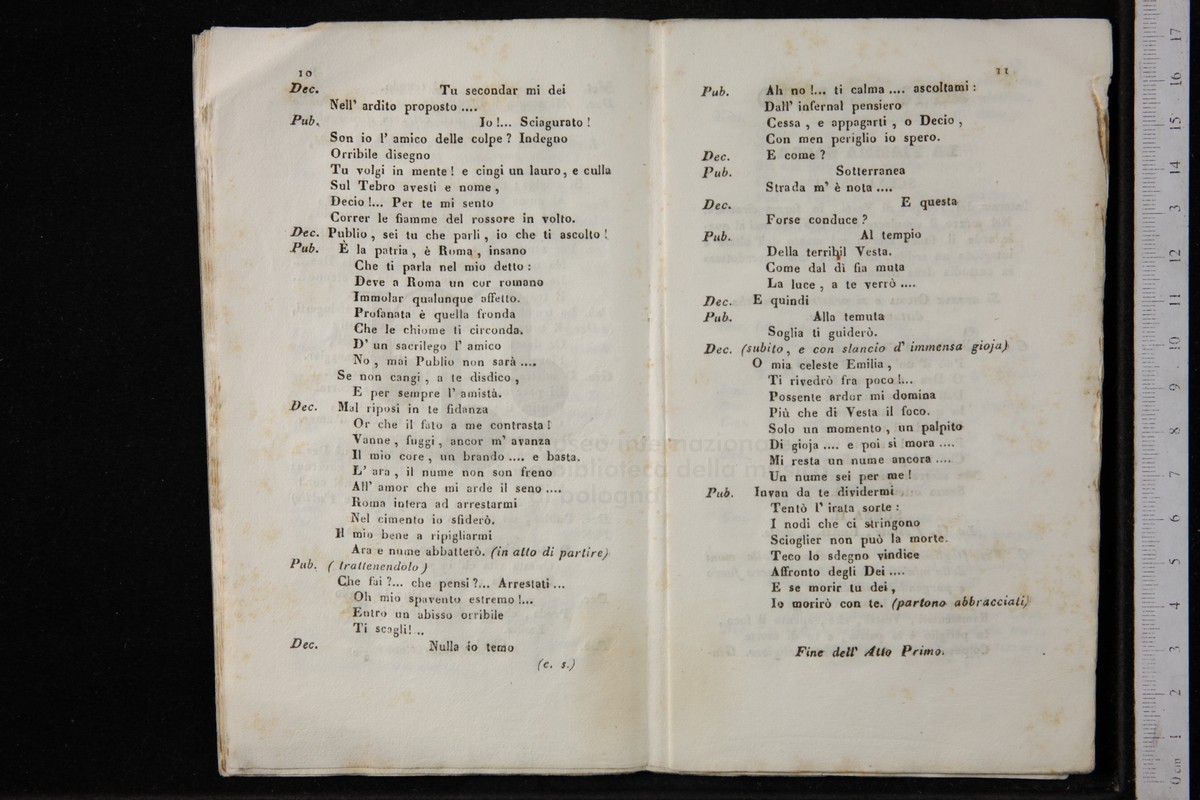 10
Dec. Tu secondar mi dei
Nell' ardito proposto ....
Pub. Io !... Sciagurato !
Son io l' amico delle colpe ? Indegno
Orribile disegno
Tu volgi in mente ! e cingi un lauro, e culla
Sul Tebro avesti e nome ,
Decio !... Per te mi sento
Correr le fiamme del rossore in volto.
Dec. Publio , sei tu che parli , io che ti ascolto !
Pub. È la patria , è Roma , insano
Che ti parla nel mio detto :
Deve a Roma un cor romano
Immolar qualunque affetto.
Profanata è quella fronda
Che le chiome ti circonda.
D' un sacrilego l' amico
No , mai Publio non sarà ....
Se non cangi , a te disdico ,
E per sempre l' amistà.
Dec. Mal riposi in te fidanza
Or che il fato a me contrasta !
Vanne , fuggi , ancor m' avanza
Il mio core , un brando .... e basta.
L' ara , il nume non son freno
All' amor che mi arde il seno ....
Roma intera ad arrestarmi
Nel cimento io sfiderò.
Il mio bene a ripigliarmi
Ara e nume abbatterò. (in atto di partire)
Pub. ( trattenendolo )
Che fai ?... che pensi ?... Arrestati ...
Oh mio spavento estremo !...
Entro un abisso orribile
Ti scagli! ..
Dec. Nulla io temo
(c. s.)
11
Pub. Ah no !... ti calma .... ascoltami :
Dall' infernal pensiero
Cessa , e appagarti , o Decio ,
Con men periglio io spero.
Dec. E come ?
Pub. Sotterranea
Strada m' è nota ....
Dec. E questa
Forse conduce ?
Pub. Al tempio
Della terribil Vesta.
Come dal dì fia muta
La luce , a te verrò ....
Dec. E quindi
Pub. Alla temuta
Soglia ti guiderò.
Dec. (subito , e con slancio d' immensa gioja)
O mia celeste Emilia ,
Ti rivedrò fra poco !...
Possente ardor mi domina
Più che di Vesta il foco.
Solo un momento , un palpito
Di gioja .... e poi si mora ....
Mi resta un nume ancora ....
Un nume sei per me !
Pub. Invan da te dividermi
Tentò l' irata sorte :
I nodi che ci stringono
Scioglier non può la morte.
Teco lo sdegno vindice
Affronto degli Dei ....
E se morir tu dei ,
Io morirò con te. (partono abbracciati)
Fine dell' Atto Primo.
museo internazionale
biblioteca della musica
di bologna
0 cm 1 2 3 4 5 6 7 8 9 10 11 12 13 14 15 16 17